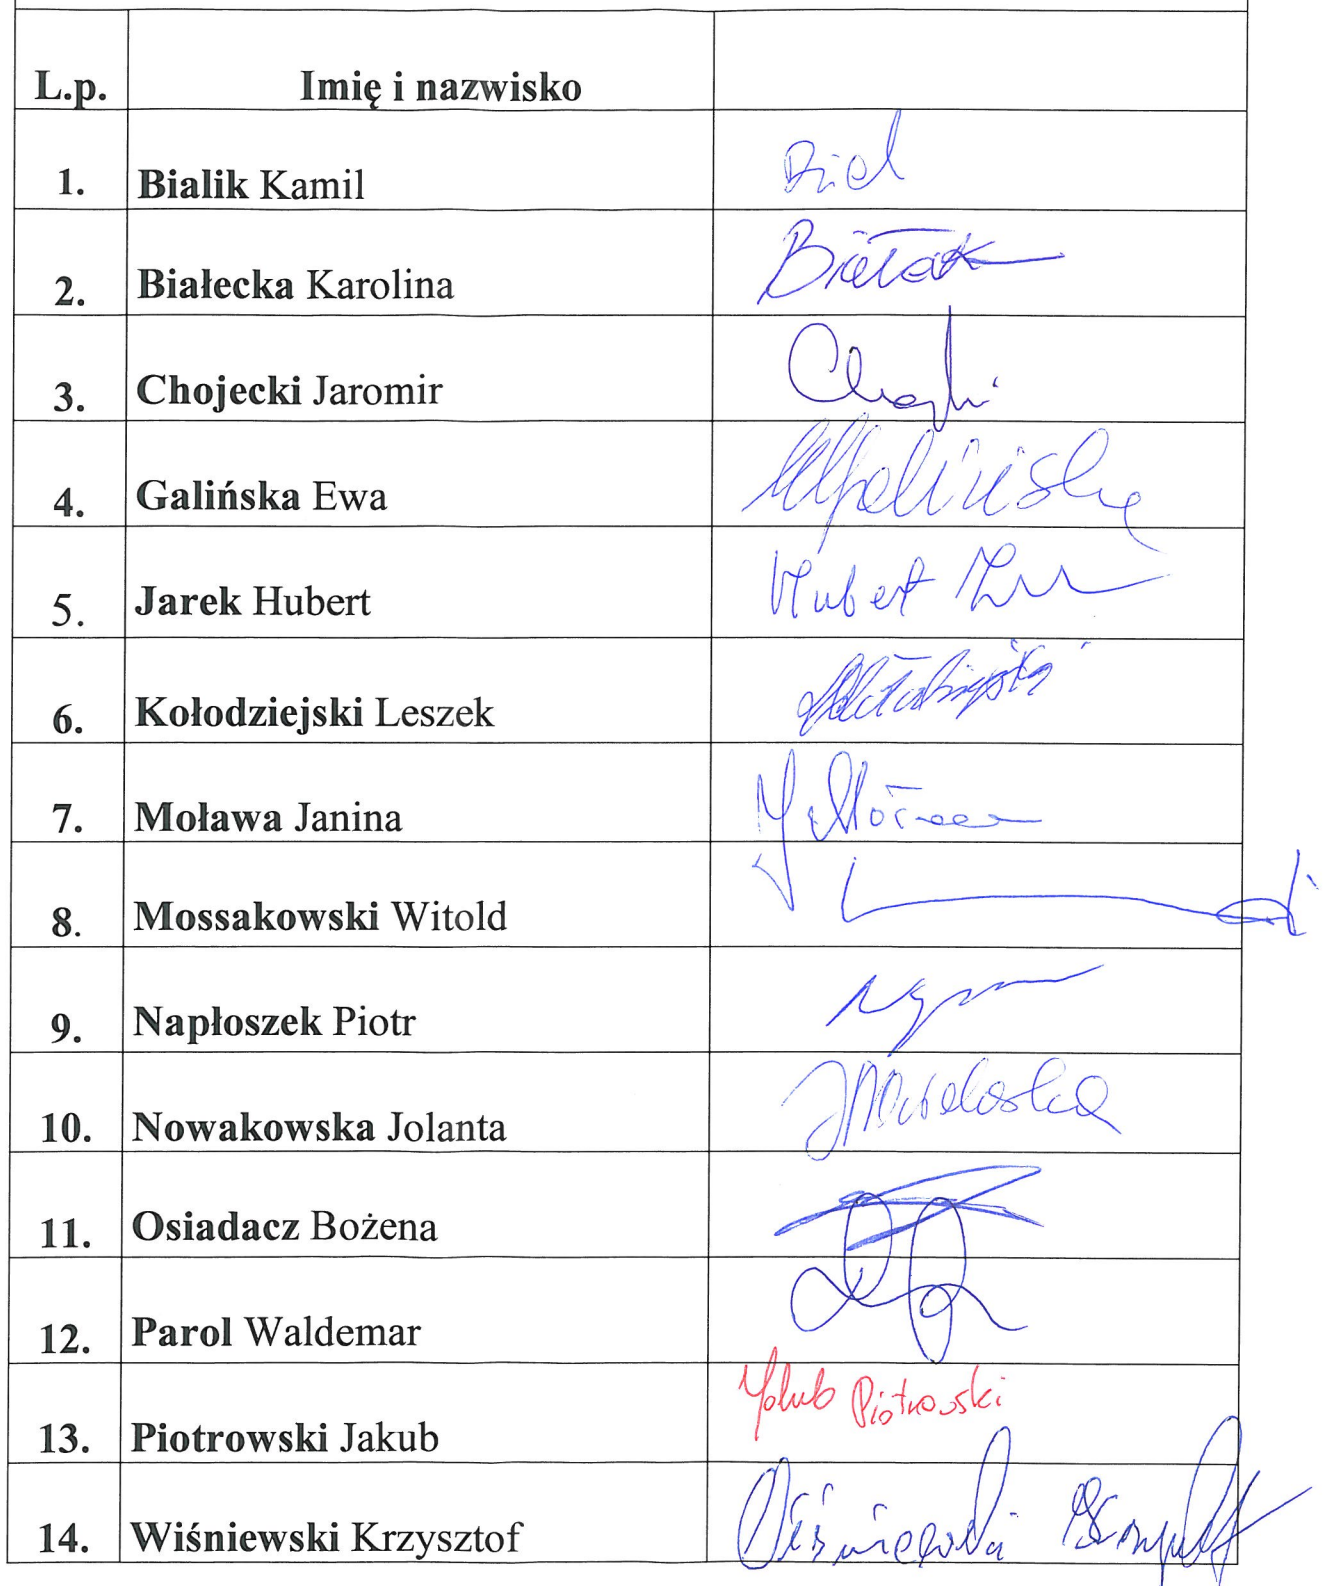 L.p. Imię i nazwisko
1. Bialik Kamil
2. Białecka Karolina
3. Chojecki Jaromir
4. Galińska Ewa
5. Jarek Hubert Hubert
6. Kołodziejski Leszek
7. Moława Janina
8. Mossakowski Witold
9. Napłoszek Piotr
10. Nowakowska Jolanta
11. Osiadacz Bożena
12. Parol Waldemar
13. Piotrowski Jakub Jakub Piotrowski
14. Wiśniewski Krzysztof Wiśniewski